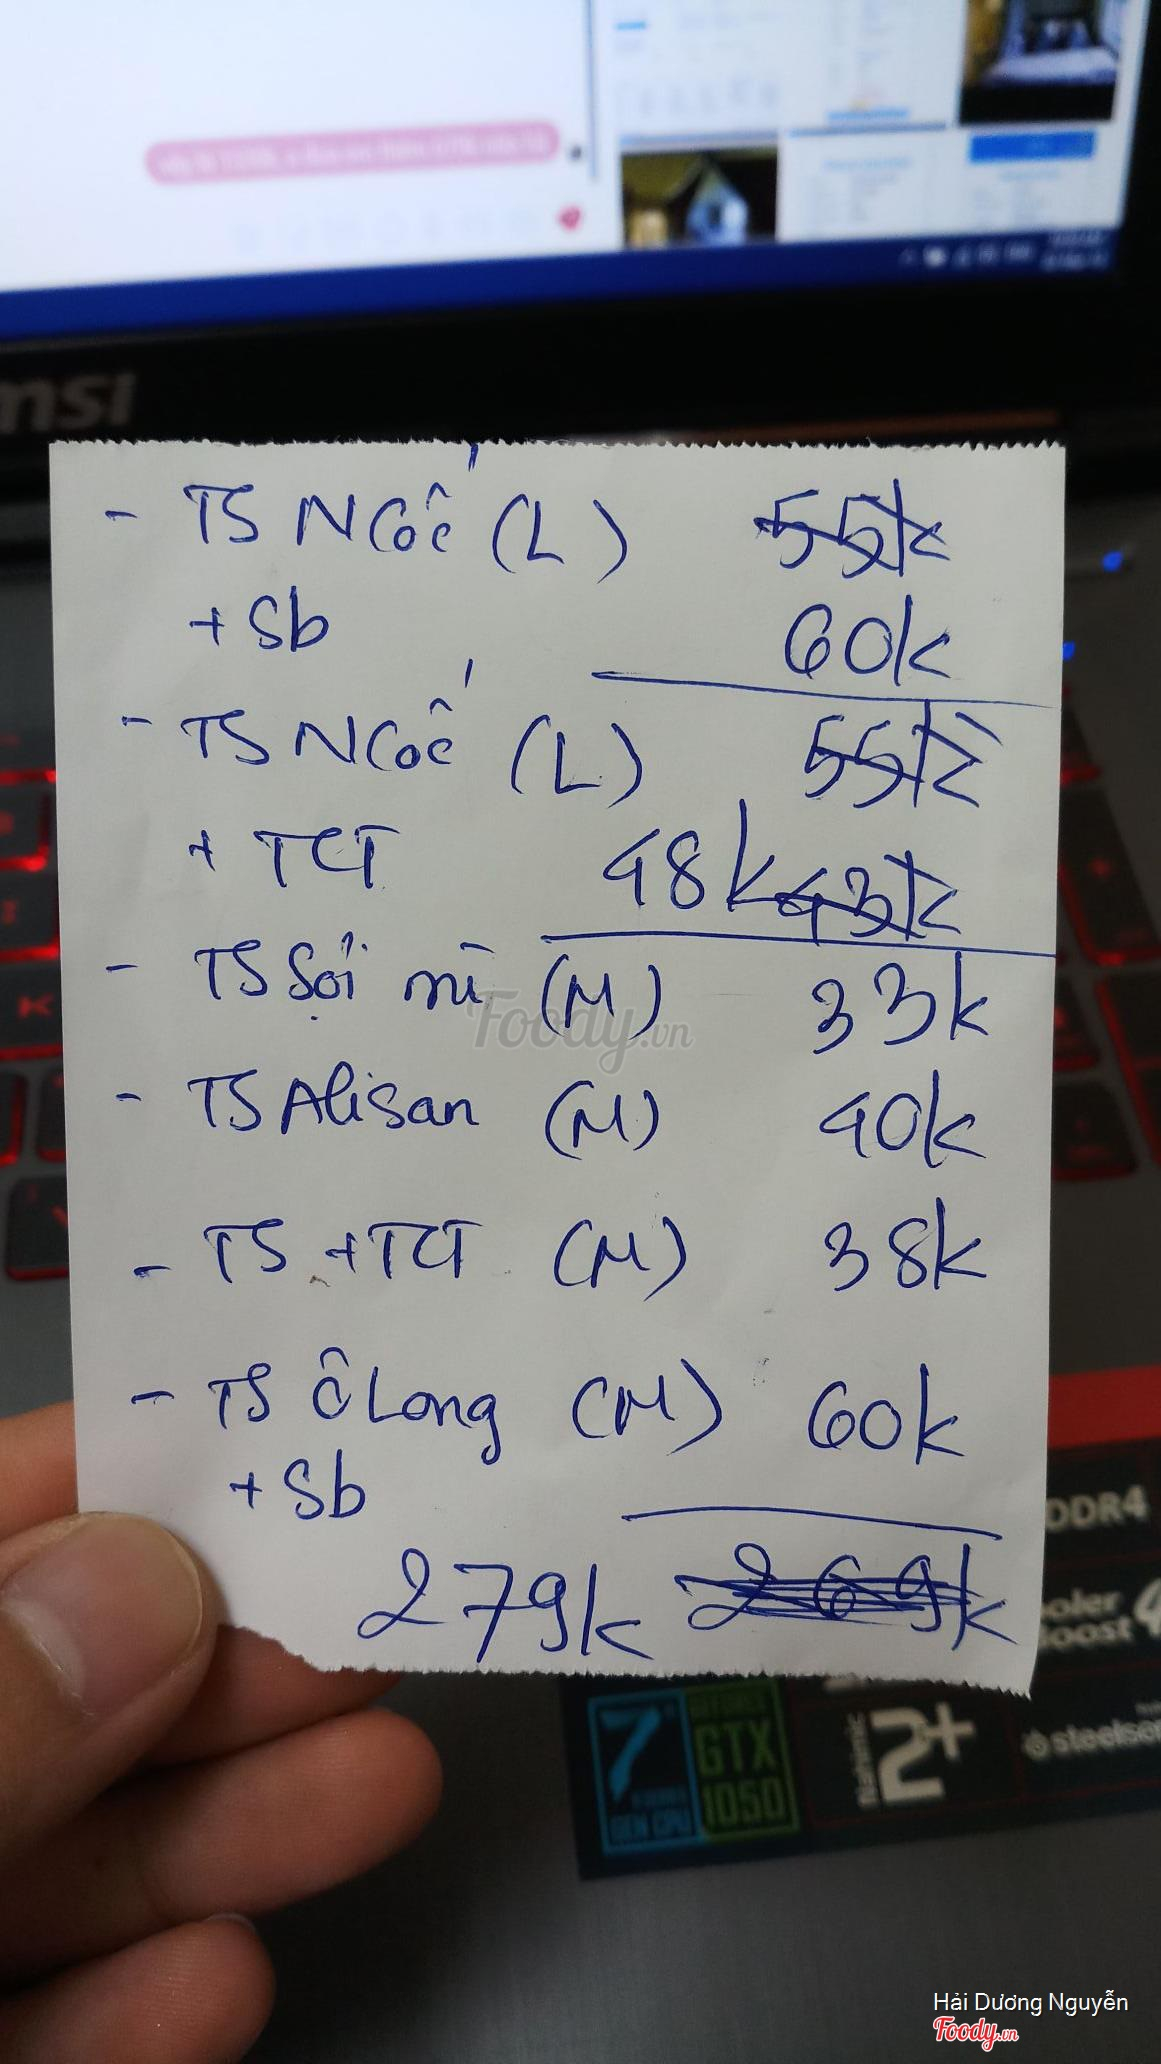 msi
- TS Ngố (L) 55k
+ Sb 60k
- TS Ngố (L) 55k
+ TCT 48k 43k
- TS Sợi mì (M) 33k
- TS Alisan (M) 40k
- TS + TCT (M) 38k
- TS Ô Long (M) 60k
+ Sb
279k 269k
Foody.vn
DDR4
ooler
Boost 4
7
GEFORCE
GTX
1050
Nahimic
2+
steelser
Hải Dương Nguyễn
Foody.vn